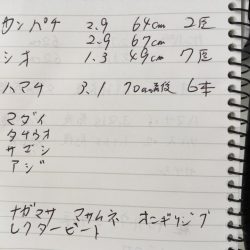 カンパチ 2.9 64cm 2匹
2.9 67cm
シオ 1.3 49cm 7匹
ハマチ 3.1 70cm前後 6本
マダイ
タチウオ
サゴシ
アジ
ナガマサ マサムネ オニギリジグ
レクタービート